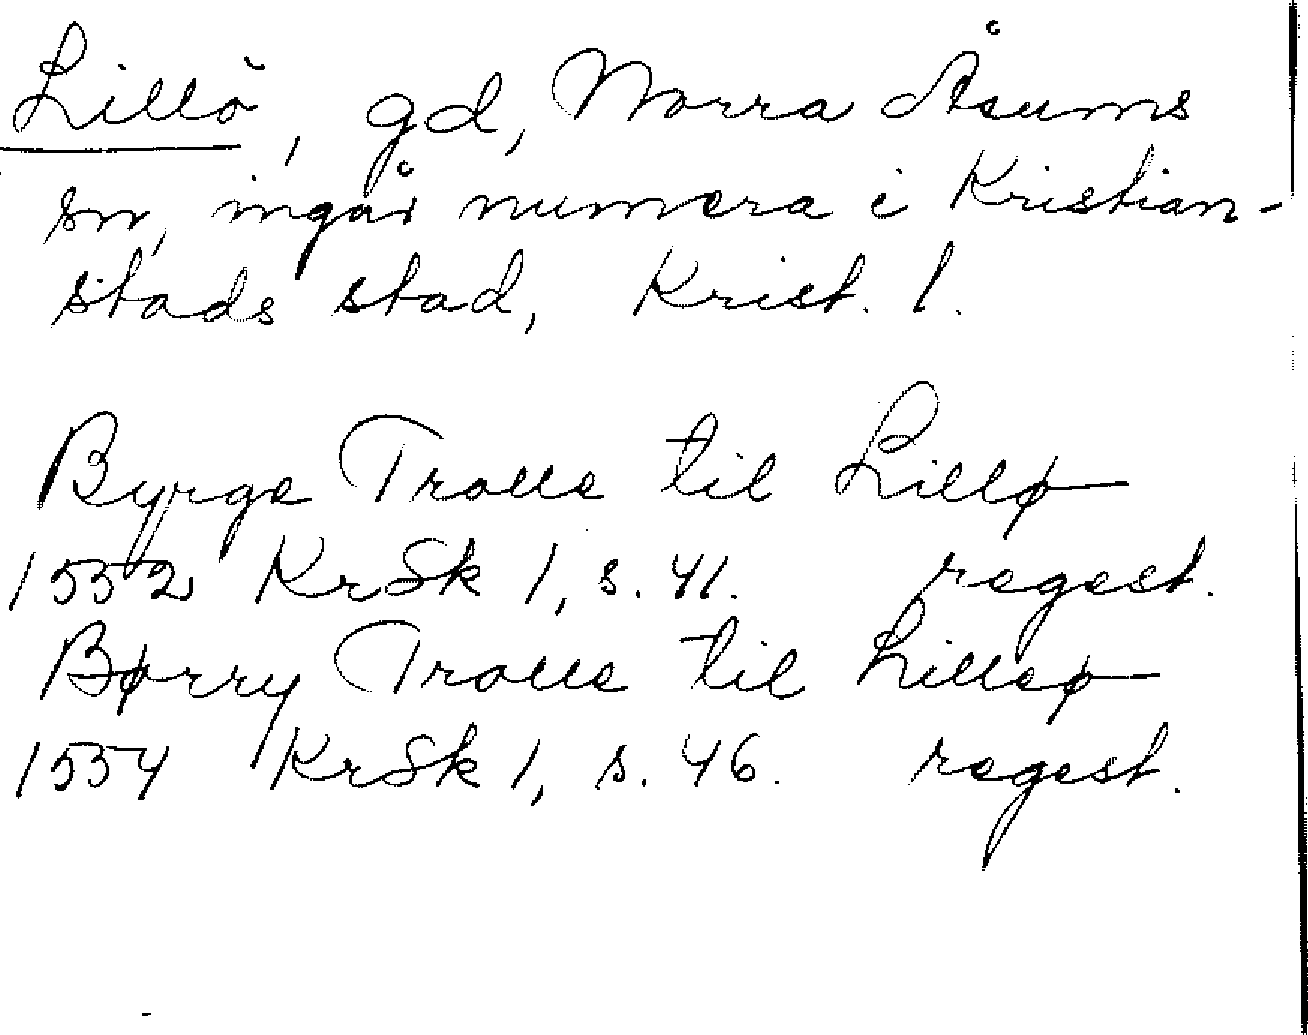 Lillö, gd, Norra Åsums
sn, ingår numera i Kristian-
stads stad, Krist. l.
Byrge Trolle til Lillø
1552 KrSk 1, s. 41. regest.
Børry Trolle til Lilleø
1554 KrSk 1, s. 46. regest.